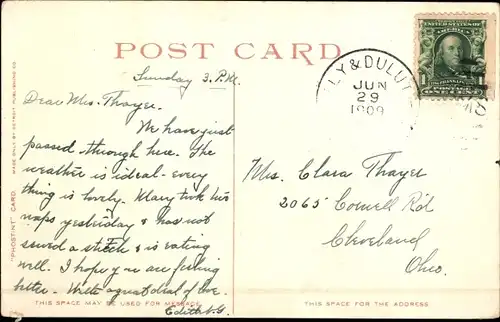 POST CARD
UNITED STATES OF AMERICA
FRANKLIN
1 1
POSTAGE
ONE CENT
LY & DULUT
JUN
29
1909
Sunday 3. P.M.
Dear Mrs. Thayer.
We have just
passed through here. The
weather is ideal - every
thing is lovely. Mary took his
naps yesterday & has not
sewed a stitch & is eating
well. I hope you are feeling
better. With a great deal of love.
Edith
Mrs. Clara Thayer
2065 Cornell R'd
Cleveland
Ohio.
"PHOSTINT" CARD. MADE ONLY BY DETROIT PUBLISHING CO.
THIS SPACE MAY BE USED FOR MESSAGE.
THIS SPACE FOR THE ADDRESS